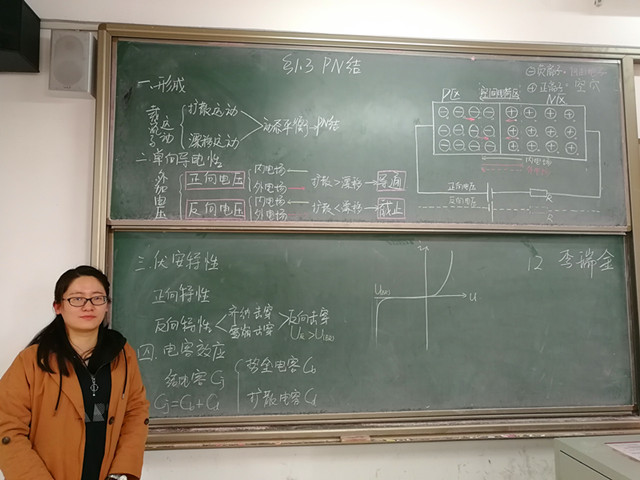 §1.3 PN结
一.形成
载流子运动
扩散运动
漂移运动
动态平衡→PN结
二.单向导电性
外加电压
正向电压
内电场
外电场
扩散>漂移→导通
反向电压
内电场
外电场
扩散<漂移→截止
⊖负离子:
⊕正离子: 空穴
P区 空间电荷区 N区
内电场
正向电压
反向电压
R
三.伏安特性
正向特性
反向特性
齐纳击穿
雪崩击穿
反向击穿
四.电容效应
结电容Cj
Cj=Cb+Cd
势垒电容Cb
扩散电容Cd
i
U(BR)
u
12 李瑞金